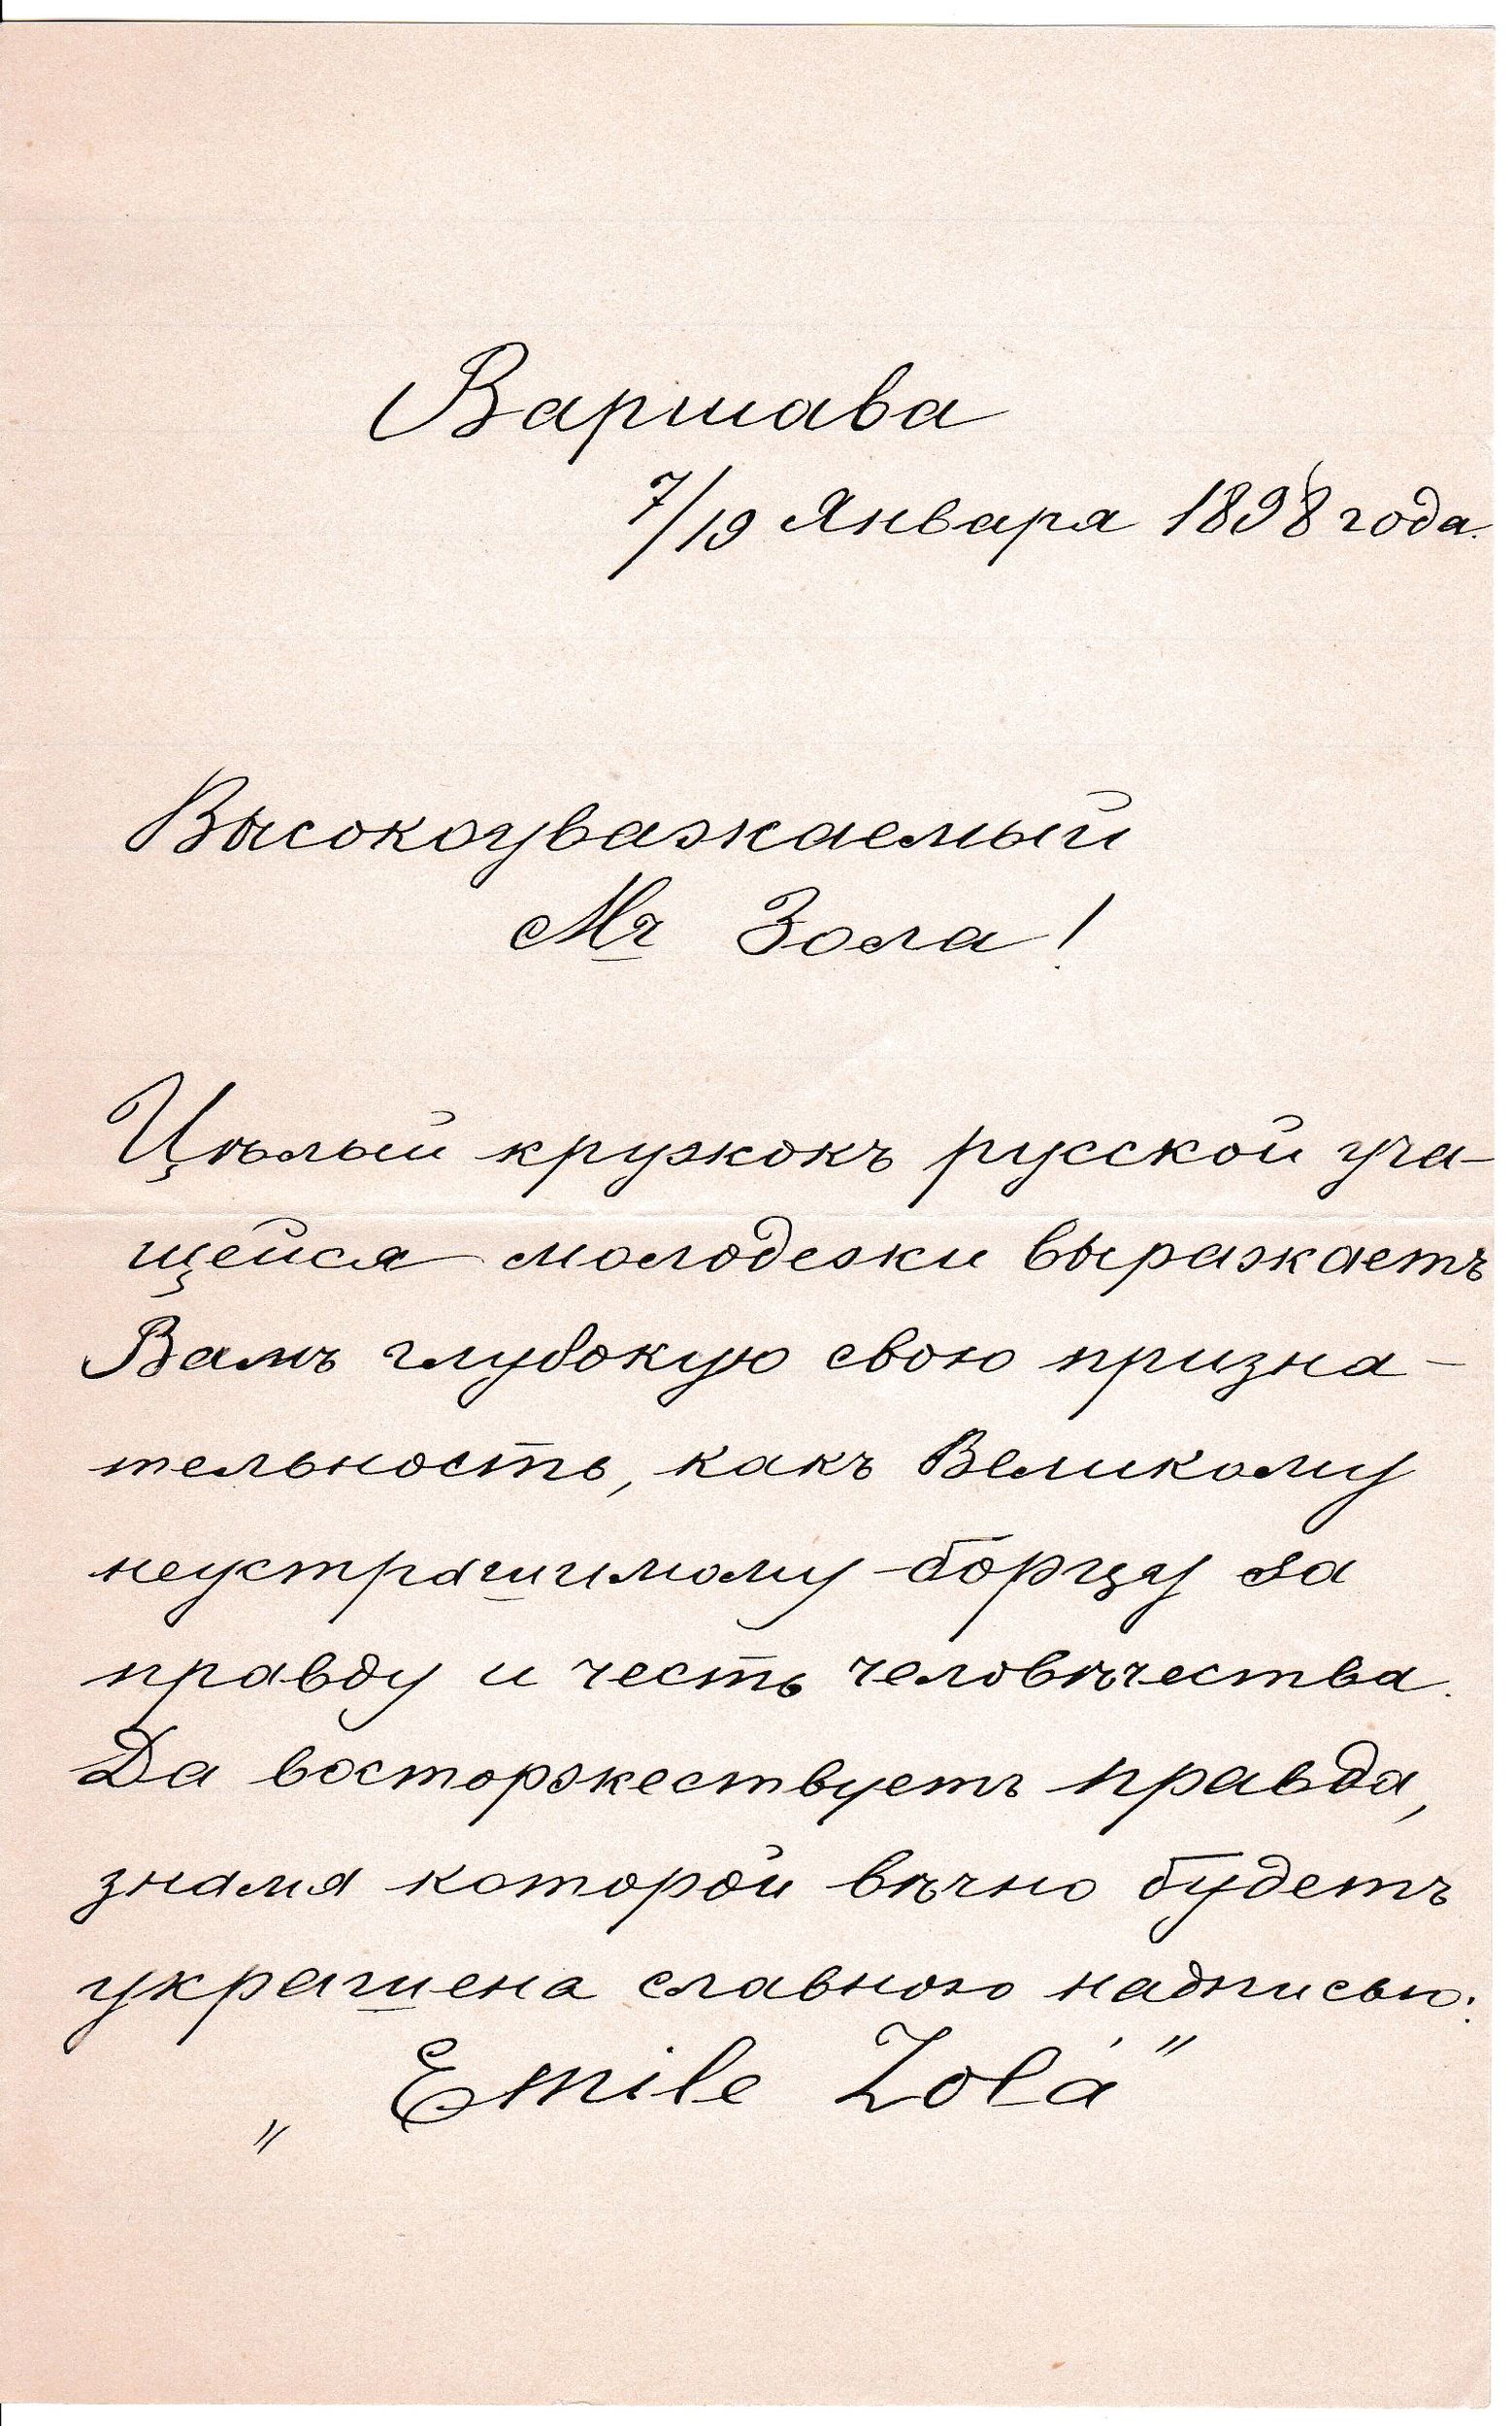 Варшава
7/19 Января 1898 года.
Высокоуважаемый
Mr Зола!
Цѣлый кружокъ русской уча-
щейся молодежи выражаетъ
Вамъ глубокую свою призна-
тельность, какъ Великому
неустрашимому борцу за
правду и честь человѣчества.
Да восторжествуетъ правда,
знамя которой вѣчно будетъ
украшена славною надписью:
„Emile Zolá"